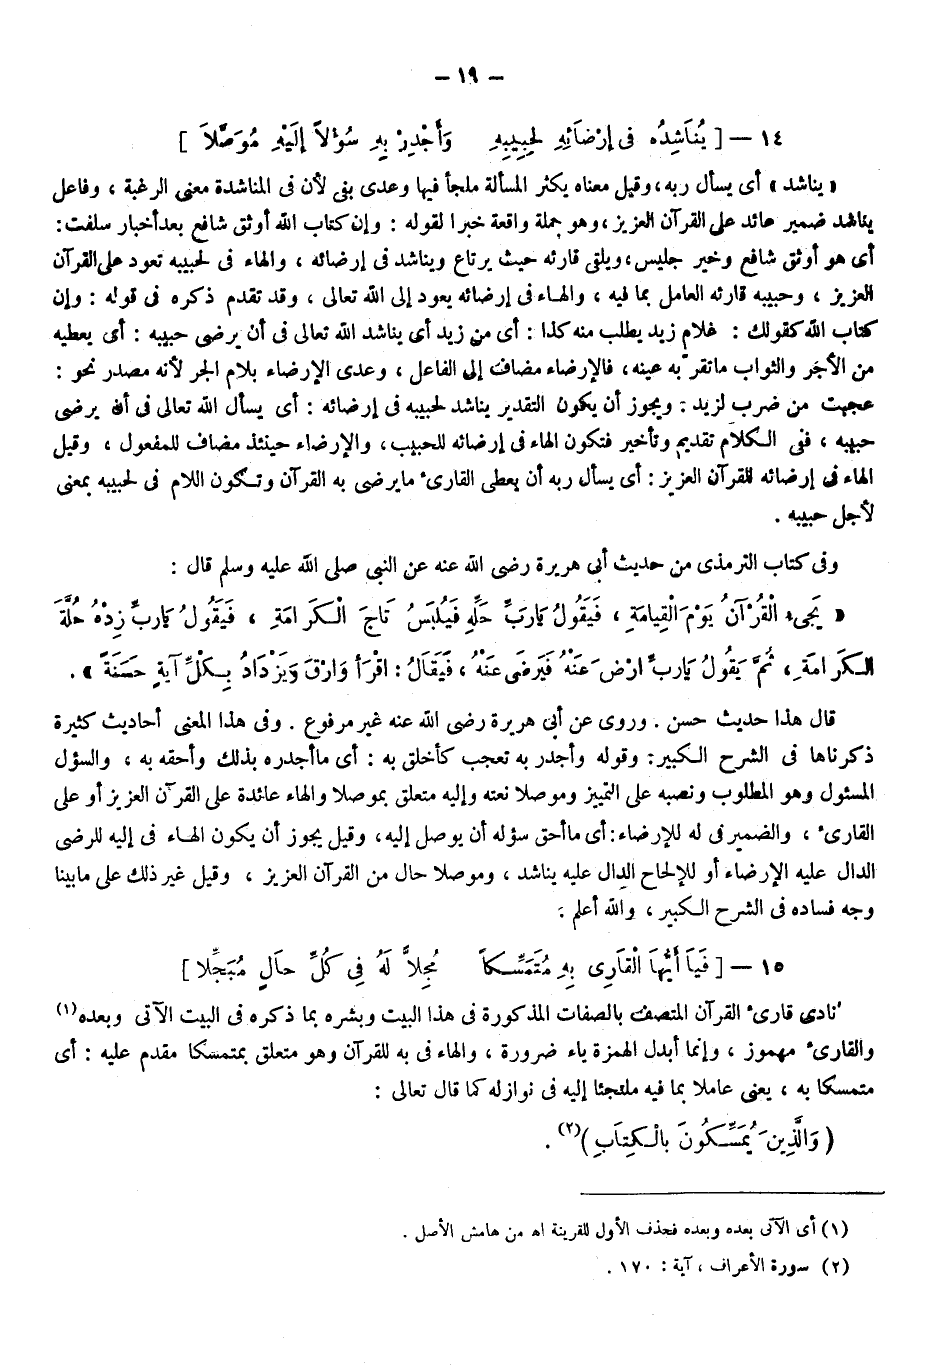 — ١٩ —
١٤ — [ يُنَاشِدُه فى إرْضَائِهِ لحَبِيبِهِ وَأَجْدِرْ بِهِ سُؤْلاً إلَيْهِ مُوَصَّلاَ ]
« يناشد » أى يسأل ربه، وقيل معناه يكثر المسألة ملجأ فيها وعدى بفى لأن فى المناشدة معنى الرغبة ، وفاعل
يناشد ضمير عائد على القرآن العزيز، وهو جملة واقعة خبرا لقوله : وإن كتاب الله أوثق شافع بعد أخبار سلفت :
أى هو أوثق شافع وخير جليس، ويلقى قارئه حيث يرتاع ويناشد فى إرضائه ، والهاء فى لحبيبه تعود على القرآن
العزيز ، وحبيبه قارئه العامل بما فيه ، والهاء فى إرضائه يعود إلى الله تعالى ، وقد تقدم ذكره فى قوله : وإن
كتاب الله كقولك : غلام زيد يطلب منه كذا : أى من زيد أى يناشد الله تعالى فى أن يرضى حبيبه : أى يعطيه
من الأجر والثواب ماتقرّ به عينه، فالإرضاء مضاف إلى الفاعل ، وعدى الإرضاء بلام الجر لأنه مصدر نحو :
عجبت من ضرب لزيد . ويجوز أن يكون التقدير يناشد لحبيبه فى إرضائه : أى يسأل الله تعالى فى أن يرضى
حبيبه ، ففى الكلام تقديم وتأخير فتكون الهاء فى إرضائه للحبيب، والإرضاء حينئذ مضاف للمفعول ، وقيل
الهاء فى إرضائه للقرآن العزيز : أى يسأل ربه أن يعطى القارىء مايرضى به القرآن وتكون اللام فى لحبيبه بمعنى
لأجل حبيبه .
وفى كتاب الترمذى من حديث أبى هريرة رضى الله عنه عن النبى صلى الله عليه وسلم قال :
« يَجىء الْقُرْآنُ يَوْمَ الْقِيامَةِ ، فَيَقُولُ يارَبِّ حَلِّهِ فَيُلبَسُ تَاجَ الْكَرَامَةِ ، فَيَقُولُ يارَبِّ زِدْهُ حُلَّةَ
الكَرَامَةِ ، ثُمَّ يَقُولُ يارَبِّ ارْضَ عَنْهُ فَيَرضَى عَنْهُ ، فَيُقَالُ : اقْرَأ وَارْقَ وَيَزْدَادُ بِكلِّ آيةٍ حَسَنَةً » .
قال هذا حديث حسن . وروى عن أبى هريرة رضى الله عنه غير مرفوع . وفى هذا المعنى أحاديث كثيرة
ذكرناها فى الشرح الكبير : وقوله وأجدر به تعجب كأخلق به : أى ماأجدره بذلك وأحقه به ، والسؤل
المسئول وهو المطلوب ونصبه على التمييز وموصلا نعته وإليه متعلق بموصلا والهاء عائدة على القرآن العزيز أو على
القارىء ، والضمير فى له للإرضاء : أى ماأحق سؤله أن يوصل إليه، وقيل يجوز أن يكون الهاء فى إليه للرضى
الدال عليه الإرضاء أو للإلحاح الدال عليه يناشد ، وموصلا حال من القرآن العزيز ، وقيل غير ذلك على مابينا
وجه فساده فى الشرح الكبير ، والله أعلم :
١٥ — [ فَيَا أَيُّهَا الْقَارِى بِهِ مُتَمَسِّكاً مُجِلاًّ لَهُ فِى كُلِّ حالٍ مُبَجِّلا ]
نادى قارىء القرآن المتصف بالصفات المذكورة فى هذا البيت وبشره بما ذكره فى البيت الآتى وبعده(١)
والقارىء مهموز ، وإنما أبدل الهمزة ياء ضرورة ، والهاء فى به للقرآن وهو متعلق بمتمسكا مقدم عليه : أى
متمسكا به ، يعنى عاملا بما فيه ملتجئا إليه فى نوازله كما قال تعالى :
( وَالَّذِينَ يُمَسِّكُونَ بالْكِتاَبِ )(٢) .
(١) أى الآتى بعده وبعده فحذف الأول للقرينة اه من هامش الأصل .
(٢) سورة الأعراف ، آية : ١٧٠ .